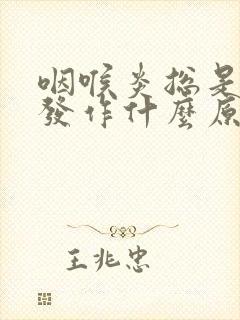 咽喉炎總是
發作什麼原
王兆忠